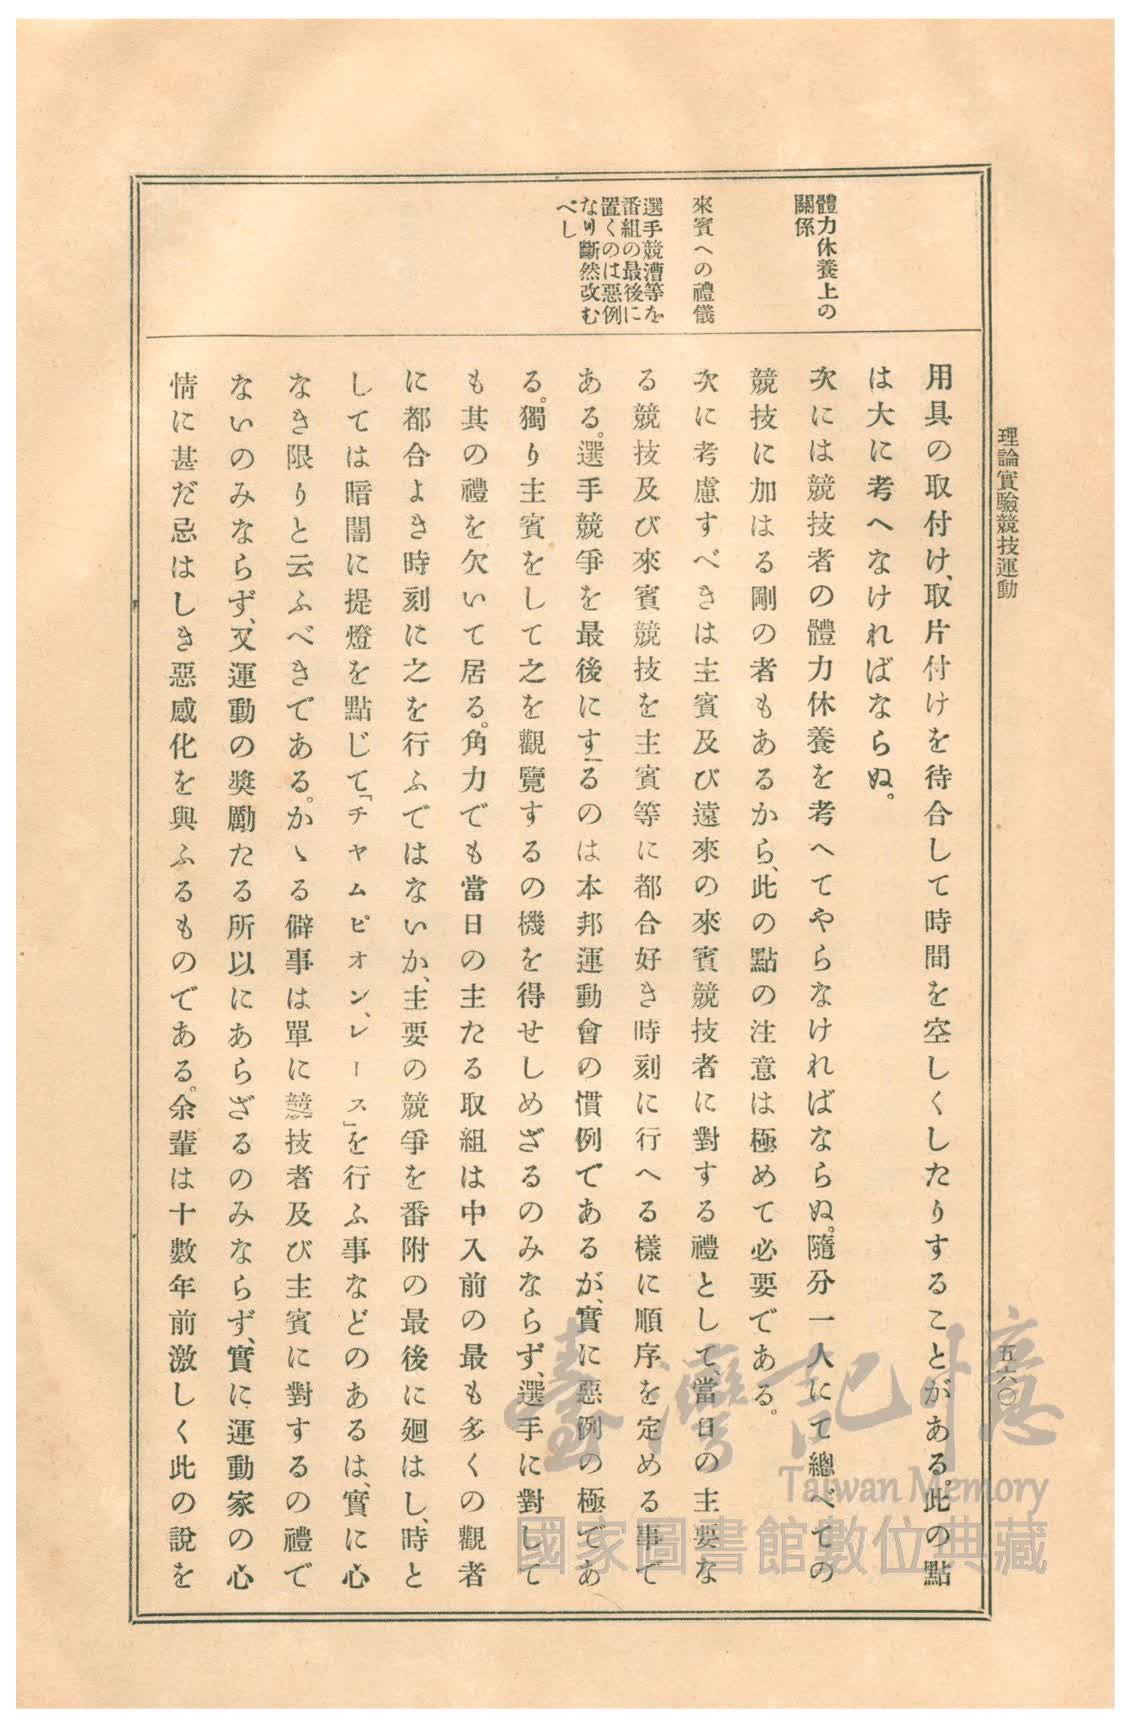 理論實驗競技運動
五六〇
體力休養上の
關係
來賓への禮儀
選手競漕等を
番組の最後に
置くのは惡例
なり斷然改む
べし
用具の取付け、取片付けを待合して時間を空しくしたりすることがある。此の點
は大に考へなければならぬ。
次には競技者の體力休養を考へてやらなければならぬ。隨分一人にて總べての
競技に加はる剛の者もあるから、此の點の注意は極めて必要である。
次に考慮すべきは主賓及び遠來の來賓競技者に對する禮として、當日の主要な
る競技及び來賓競技を主賓等に都合好き時刻に行へる樣に順序を定める事で
ある。選手競爭を最後にするのは本邦運動會の慣例であるが、實に惡例の極であ
る。獨り主賓をして之を觀覽するの機を得せしめざるのみならず、選手に對して
も其の禮を欠いて居る。角力でも當日の主たる取組は中入前の最も多くの觀者
に都合よき時刻に之を行ふではないか、主要の競爭を番附の最後に廻はし、時と
しては暗闇に提燈を點じて「チヤムピオン、レース」を行ふ事などのあるは、實に心
なき限りと云ふべきである。かゝる僻事は單に競技者及び主賓に對するの禮で
ないのみならず、又運動の奬勵たる所以にあらざるのみならず、實に運動家の心
情に甚だ忌はしき惡感化を與ふるものである。余輩は十數年前激しく此の說を
臺灣記憶
Taiwan Memory
國家圖書館數位典藏